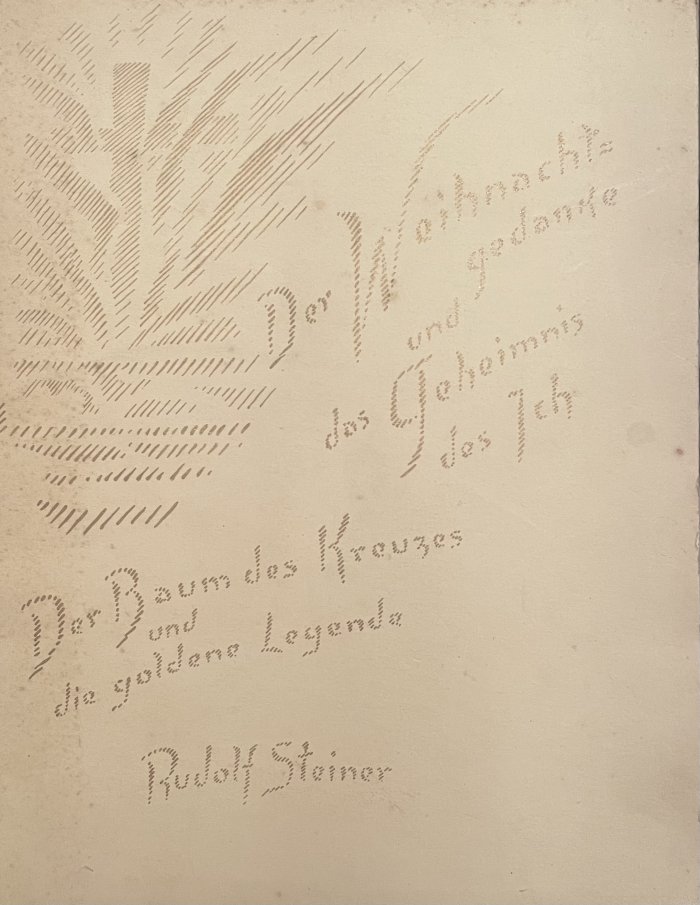 Der Weihnachts=
gedanke
und
das Geheimnis
des Ich
Der Baum des Kreuzes
und
die goldene Legende
Rudolf Steiner